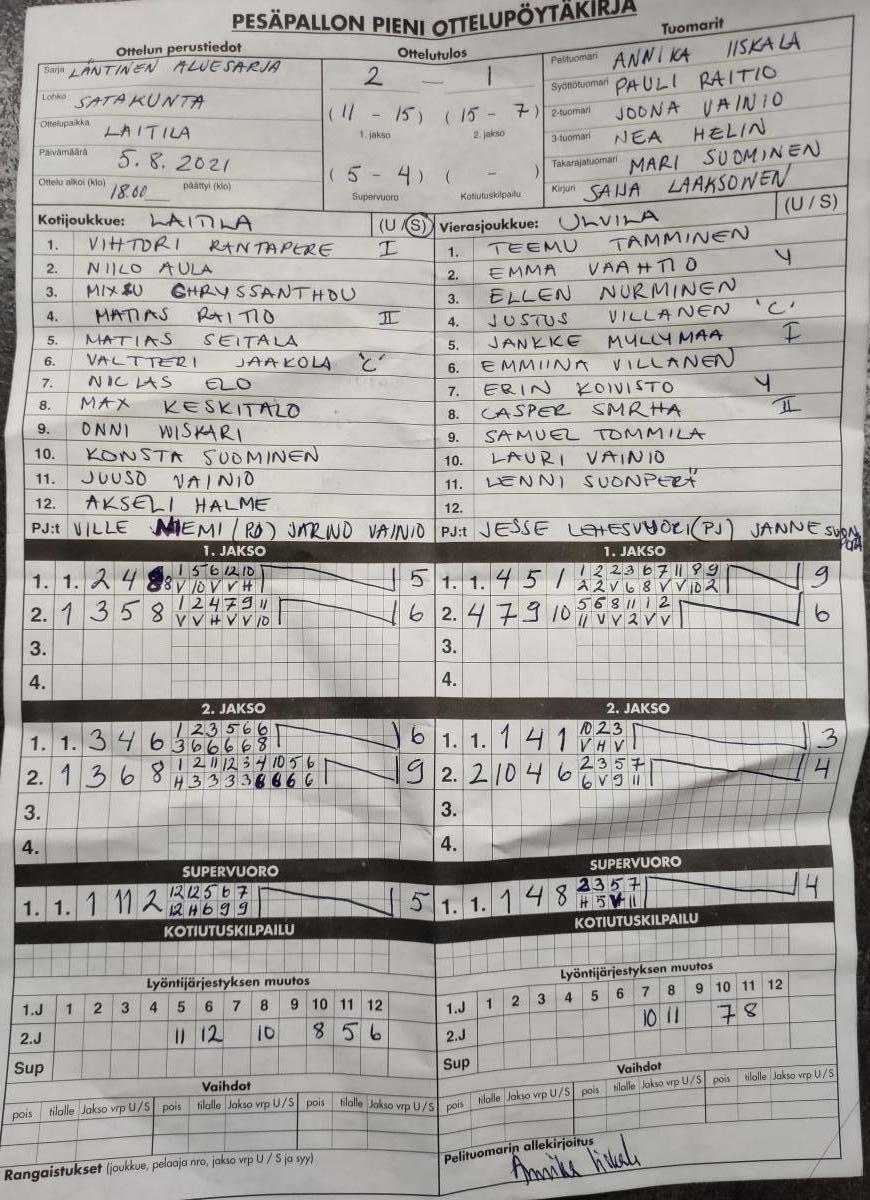 PESÄPALLON PIENI OTTELUPÖYTÄKIRJA
Ottelun perustiedot
Sarja LÄNTINEN ALUESARJA
Lohko SATAKUNTA
Ottelupaikka LAITILA
Päivämäärä 5.8.2021
Ottelu alkoi (klo) 18.00 päättyi (klo)
Ottelutulos
2 — 1
(11 - 15) (15 - 7)
1. jakso 2. jakso
(5 - 4) ( - )
Supervuoro Kotiutuskilpailu
Tuomarit
Pelituomari ANNIKA IISKALA
Syöttötuomari PAULI RAITIO
2-tuomari JOONA VAINIO
3-tuomari NEA HELIN
Takarajatuomari MARI SUOMINEN
Kirjuri SAIJA LAAKSONEN
Kotijoukkue: LAITILA (U/S)
1. VIHTORI RANTAPERE I
2. NIILO AULA
3. MIXSU CHRYSSANTHOU
4. MATIAS RAITIO II
5. MATIAS SEITALA
6. VALTTERI JAAKOLA 'C'
7. NICLAS ELO
8. MAX KESKITALO
9. ONNI WISKARI
10. KONSTA SUOMINEN
11. JUUSO VAINIO
12. AKSELI HALME
PJ:t VILLE NIEMI (PJ) JARNO VAINIO
Vierasjoukkue: ULVILA (U/S)
1. TEEMU TAMMINEN
2. EMMA VAAHTIO Y
3. ELLEN NURMINEN
4. JUSTUS VILLANEN 'C'
5. JANKKE MYLLYMAA I
6. EMMIINA VILLANEN
7. ERIN KOIVISTO Y
8. CASPER SMRHA II
9. SAMUEL TOMMILA
10. LAURI VAINIO
11. LENNI SUONPERÄ
12.
PJ:t JESSE LEHESVUORI (PJ) JANNE SUONPERÄ
1. JAKSO
1. 1. 2 4 8 1 5 6 12 10 5
V 10 V V H
2. 1 3 5 8 1 2 4 7 9 11 6
V V H V V 10
3.
4.
1. JAKSO
1. 1. 4 5 1 1 2 2 3 6 7 11 8 9 9
2 2 V 6 8 V V 10 2
2. 4 7 9 10 5 6 8 11 1 2 6
11 V V 2 V V
3.
4.
2. JAKSO
1. 1. 3 4 6 1 2 3 5 6 6 6
3 6 6 6 6 8
2. 1 3 6 8 1 2 11 12 3 4 10 5 6 9
H 3 3 3 3 6 6 6 6
3.
4.
2. JAKSO
1. 1. 1 4 1 10 2 3 3
V H V
2. 2 10 4 6 2 3 5 7 4
6 V 9 11
3.
4.
SUPERVUORO
1. 1. 1 11 2 12 12 5 6 7 5
12 H 6 9 9
SUPERVUORO
1. 1. 1 4 8 2 3 5 7 4
H 5 V 11
KOTIUTUSKILPAILU
KOTIUTUSKILPAILU
Lyöntijärjestyksen muutos
1.J 1 2 3 4 5 6 7 8 9 10 11 12
2.J 11 12 10 8 5 6
Sup
Lyöntijärjestyksen muutos
1.J 1 2 3 4 5 6 7 8 9 10 11 12
2.J 10 11 7 8
Sup
Vaihdot
pois tilalle Jakso vrp U/S pois tilalle Jakso vrp U/S pois tilalle Jakso vrp U/S
Vaihdot
pois tilalle Jakso vrp U/S pois tilalle Jakso vrp U/S pois tilalle Jakso vrp U/S
Rangaistukset (joukkue, pelaaja nro, jakso vrp U/S ja syy)
Pelituomarin allekirjoitus
Annika Iiskala